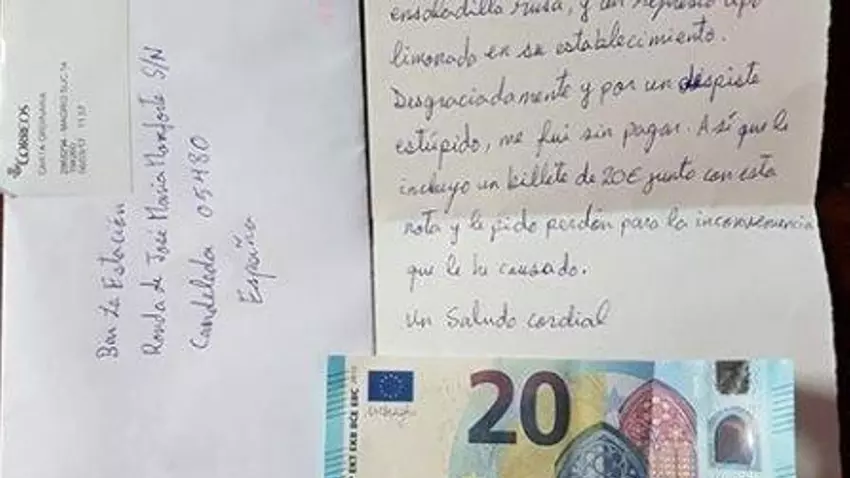 CORREOS
CARTA ORDINARIA
Bar La Estación
Ronda de José María Monforte S/N
Candeleda 05480
España
ensaladilla rusa, y un refresco tipo
limonada en su establecimiento.
Desgraciadamente y por un despiste
estúpido, me fui sin pagar. Así que le
incluyo un billete de 20€ junto con esta
nota y le pido perdón para la inconveniencia
que le he causado.
Un Saludo cordial
20
EKT EKB BCE EBC